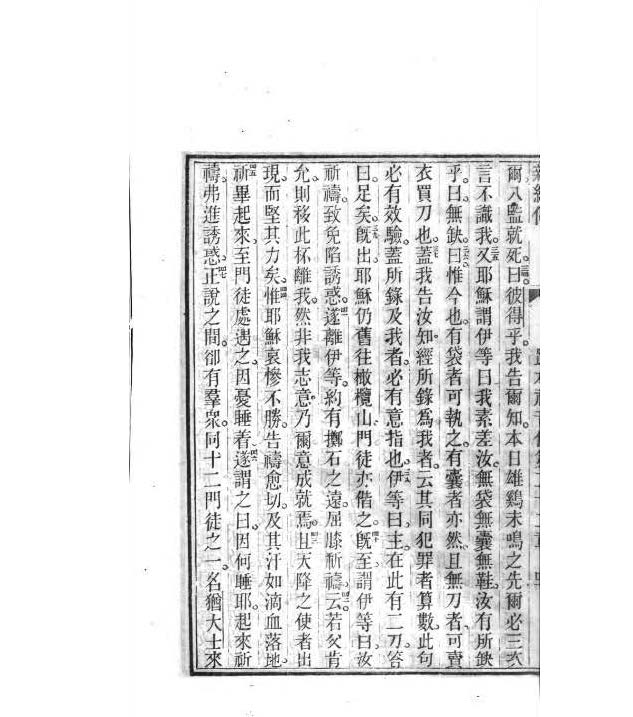 爾入監就死。曰彼得乎。我告爾知。本日雄鷄未鳴之先爾必三次
言不識我。又耶穌謂伊等曰我素差汝無袋無囊無鞋。汝有所缺
乎。曰。無缺。曰惟今也。有袋者可執之。有囊者亦然。且無刀者。可賣
衣買刀也。蓋我告汝知經所錄爲我者。云其同犯罪者算數。此句
必有效驗。蓋所錄及我者。必有意指也。伊等曰。主在此有二刀。答
曰。足矣。旣出耶穌仍舊往橄欖山。門徒亦偕之。旣至。謂伊等曰汝
祈禱。致免陷誘惑。遂離伊等。約有擲石之遠。屈膝祈禱。云若父肯
允。則移此杯離我。然非我志意。乃爾意成就焉。且天降之使者出
現而堅其力矣。惟耶穌哀慘不勝。告禱愈切。及其汗如滴血落地。
祈畢起來。至門徒處。遇之因憂睡着。遂謂之曰。因何睡耶。起來祈
禱。弗進誘惑。正說之間。卻有羣衆。同十二門徒之一。名猶大士來